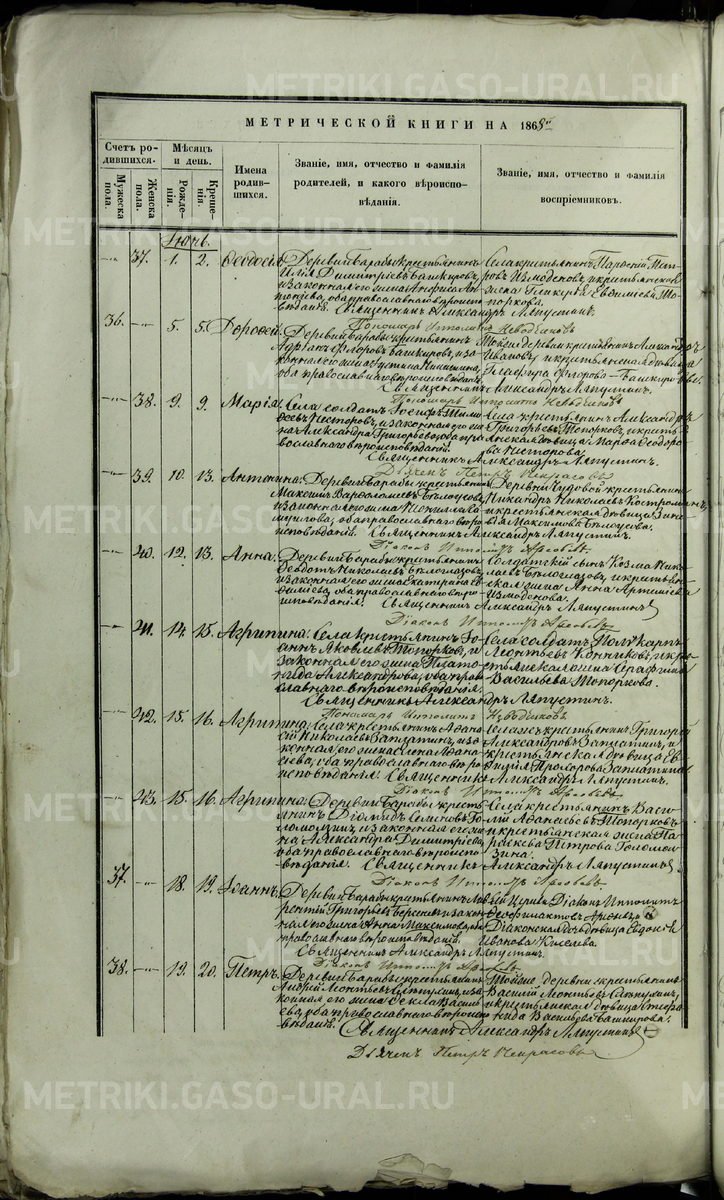 МЕТРИЧЕСКОЙ КНИГИ НА 1868й
Счетъ родившихся.
Мужеска пола.
Женска пола.
Мѣсяцъ и день.
Рожденія.
Крещенія.
Имена родившихся.
Званіе, имя, отчество и фамилія родителей, и какого вѣроисповѣданія.
Званіе, имя, отчество и фамилія воспріемниковъ.
37. 1. 2. Ѳеодосія
Деревни Барабы крестьянинъ
Илія Димитріевъ Башкировъ,
и законная его жена
оба православнаго вѣроисповѣданія.
Села крестьянинъ
и крестьянская
жена Гликерія Евфиміева Топоркова.
Священникъ Александръ Ляпустинъ.
Пономарь Ипполитъ Неводчиковъ
36. 5. 5. Дороѳей.
Деревни Барабы крестьянинъ
Адріанъ Флоровъ Башкировъ, и законная его жена Іустина
оба православнаго вѣроисповѣданія.
Той же деревни крестьянинъ Александръ
Ивановъ и крестьянская дѣвица
Глафира Флорова Башкирова.
Священникъ Александръ Ляпустинъ.
Пономарь Ипполитъ Неводчиковъ
38. 9. 9. Марія.
Села солдатъ Іосифъ
Несторовъ, и законная его жена
Александра Григорьева, оба православнаго вѣроисповѣданія.
Села крестьянинъ Александръ
Григорьевъ Топорковъ, и крестьянская вдовица Марѳа Ѳеодорова Несторова.
Священникъ Александръ Ляпустинъ.
Дьячекъ Петръ Некрасовъ
39. 10. 13. Антонина.
Деревни Барабы крестьянинъ
Максимъ Варѳоломеевъ Бѣлоусовъ,
и законная его жена
оба православнаго вѣроисповѣданія.
Деревни Чудовой крестьянинъ
Никандръ Николаевъ Костроминъ,
и крестьянская дѣвица Зиновія Максимова Бѣлоусова.
Священникъ Александръ Ляпустинъ.
Діаконъ Ипполитъ
40. 12. 13. Анна.
Деревни Барабы крестьянинъ
Ѳеодотъ Николаевъ Бѣлоглазовъ,
и законная его жена Екатерина
оба православнаго вѣроисповѣданія.
Солдатскій сынъ Козма Николаевъ Бѣлоглазовъ, и крестьянская жена Анна Артеміева
Измоденова.
Священникъ Александръ Ляпустинъ
Діаконъ Ипполитъ
41. 14. 15. Агрипина.
Села крестьянинъ Іоаннъ Яковлевъ Топорковъ, и
законная его жена Платонида Александрова, оба православнаго вѣроисповѣданія.
Села солдатъ Поликарпъ
Леонтьевъ Конниковъ, и крестьянская жена Серафима
Васильева Топоркова.
Священникъ Александръ Ляпустинъ.
Пономарь Ипполитъ Неводчиковъ
42. 15. 16. Агрипина.
Села крестьянинъ Аѳанасій Николаевъ Заплатинъ, и законная его жена
оба православнаго вѣроисповѣданія.
Села крестьянинъ Григорій
Александровъ Заплатинъ, и
крестьянская дѣвица
Прохорова Заплатина.
Священникъ Александръ Ляпустинъ.
Діаконъ Ипполитъ
43. 15. 16. Агрипина.
Деревни Барабы крестьянинъ Діомидъ Семеновъ Голомолзинъ, и законная его жена Александра Димитріева,
оба православнаго вѣроисповѣданія.
Села крестьянинъ Василій Аѳанасьевъ Топорковъ
и крестьянская жена Параскева Петрова Голомолзина.
Священникъ Александръ Ляпустинъ
Діаконъ Ипполитъ
37. 18. 19. Іоаннъ.
Деревни Барабы крестьянинъ Лаврентій Григорьевъ Берсеневъ и законная его жена Анна Максимова, оба
православнаго вѣроисповѣданія.
Сей Церкви Діаконъ Ипполитъ
Ѳеофилактовъ
Діаконская дѣвица Евдокія
Иванова Киселева.
Священникъ Александръ Ляпустинъ.
Діаконъ Ипполитъ
38. 19. 20. Петръ.
Деревни Барабы крестьянинъ
Андрей Леонтьевъ и законная его жена Ѳекла Васильева, оба православнаго вѣроисповѣданія.
Тойже деревни крестьянинъ
Василій Леонтьевъ
и крестьянская дѣвица Стефанида Васильева Башкирова.
Священникъ Александръ Ляпустинъ
Дьячекъ Петръ Некрасовъ
METRIKI.GASO-URAL.RU